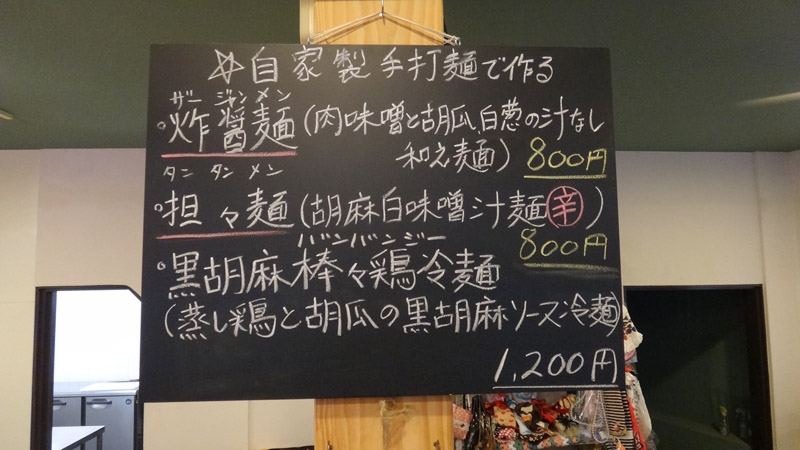 ☆自家製手打麺で作る
ザー ジャン メン
。炸醤麺(肉味噌と胡瓜、白葱の汁なし
和え麺) 800円
タン タン メン
。担々麺(胡麻白味噌汁麺辛)
800円
バンバンジー
。黒胡麻棒々鶏冷麺
(蒸し鶏と胡瓜の黒胡麻ソース冷麺)
1,200円